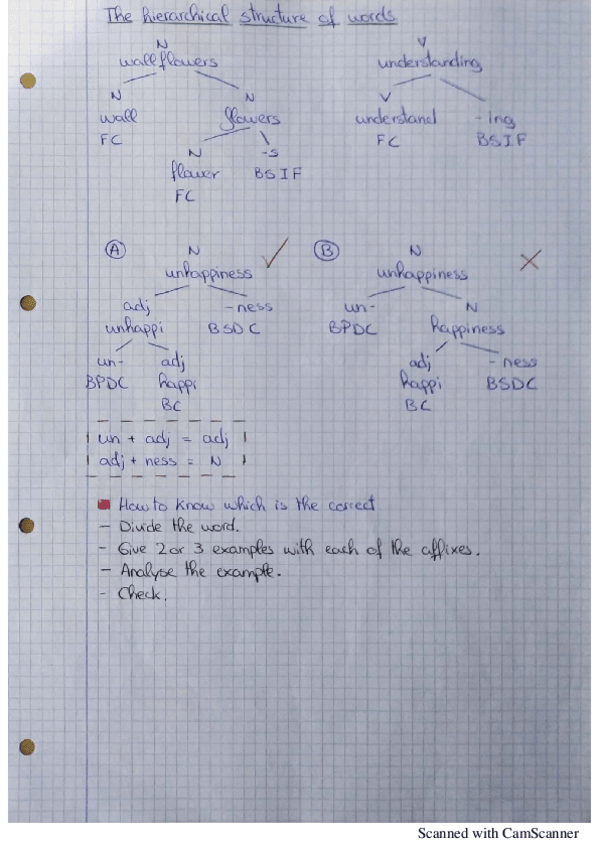 The hierarchical structure of words
N V
wallflowers understanding
N N V
wall flowers understand -ing
FC FC BSIF
N -s
flower BSIF
FC
A N ✓ B N ✗
unhappiness unhappiness
adj -ness un- N
unhappi BSDC BPDC happiness
un- adj adj -ness
BPDC happi happi BSDC
BC BC
un + adj = adj
adj + ness = N
How to know which is the correct
- Divide the word.
- Give 2 or 3 examples with each of the affixes.
- Analyse the example.
- Check.
Scanned with CamScanner